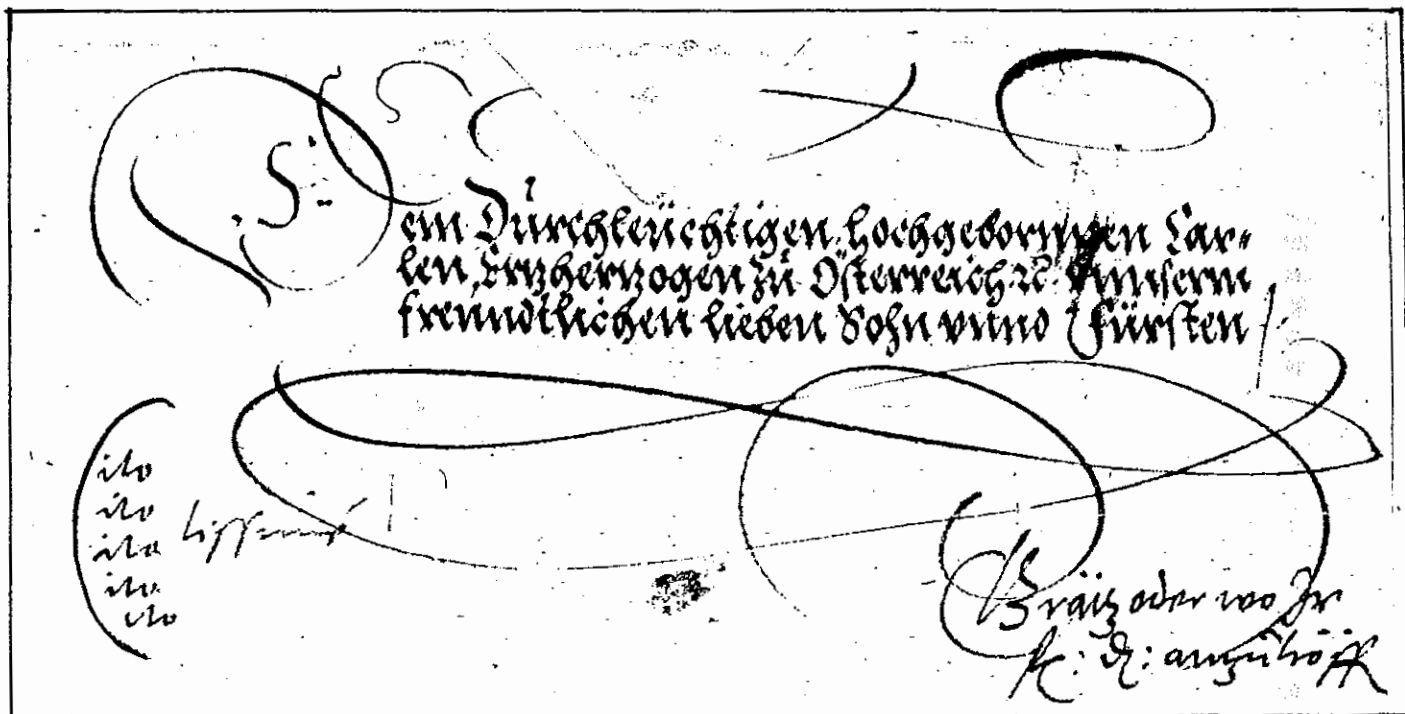 Dem Dürchleüchtigen, hochgebornnen Car-
len, Ertzhertzogen zü Österreich ꝛc. vnnserm
freündtlichen lieben Sohn vnnd Fürsten
ito
ito
ito
ito
ito
Grätz oder wo Ir